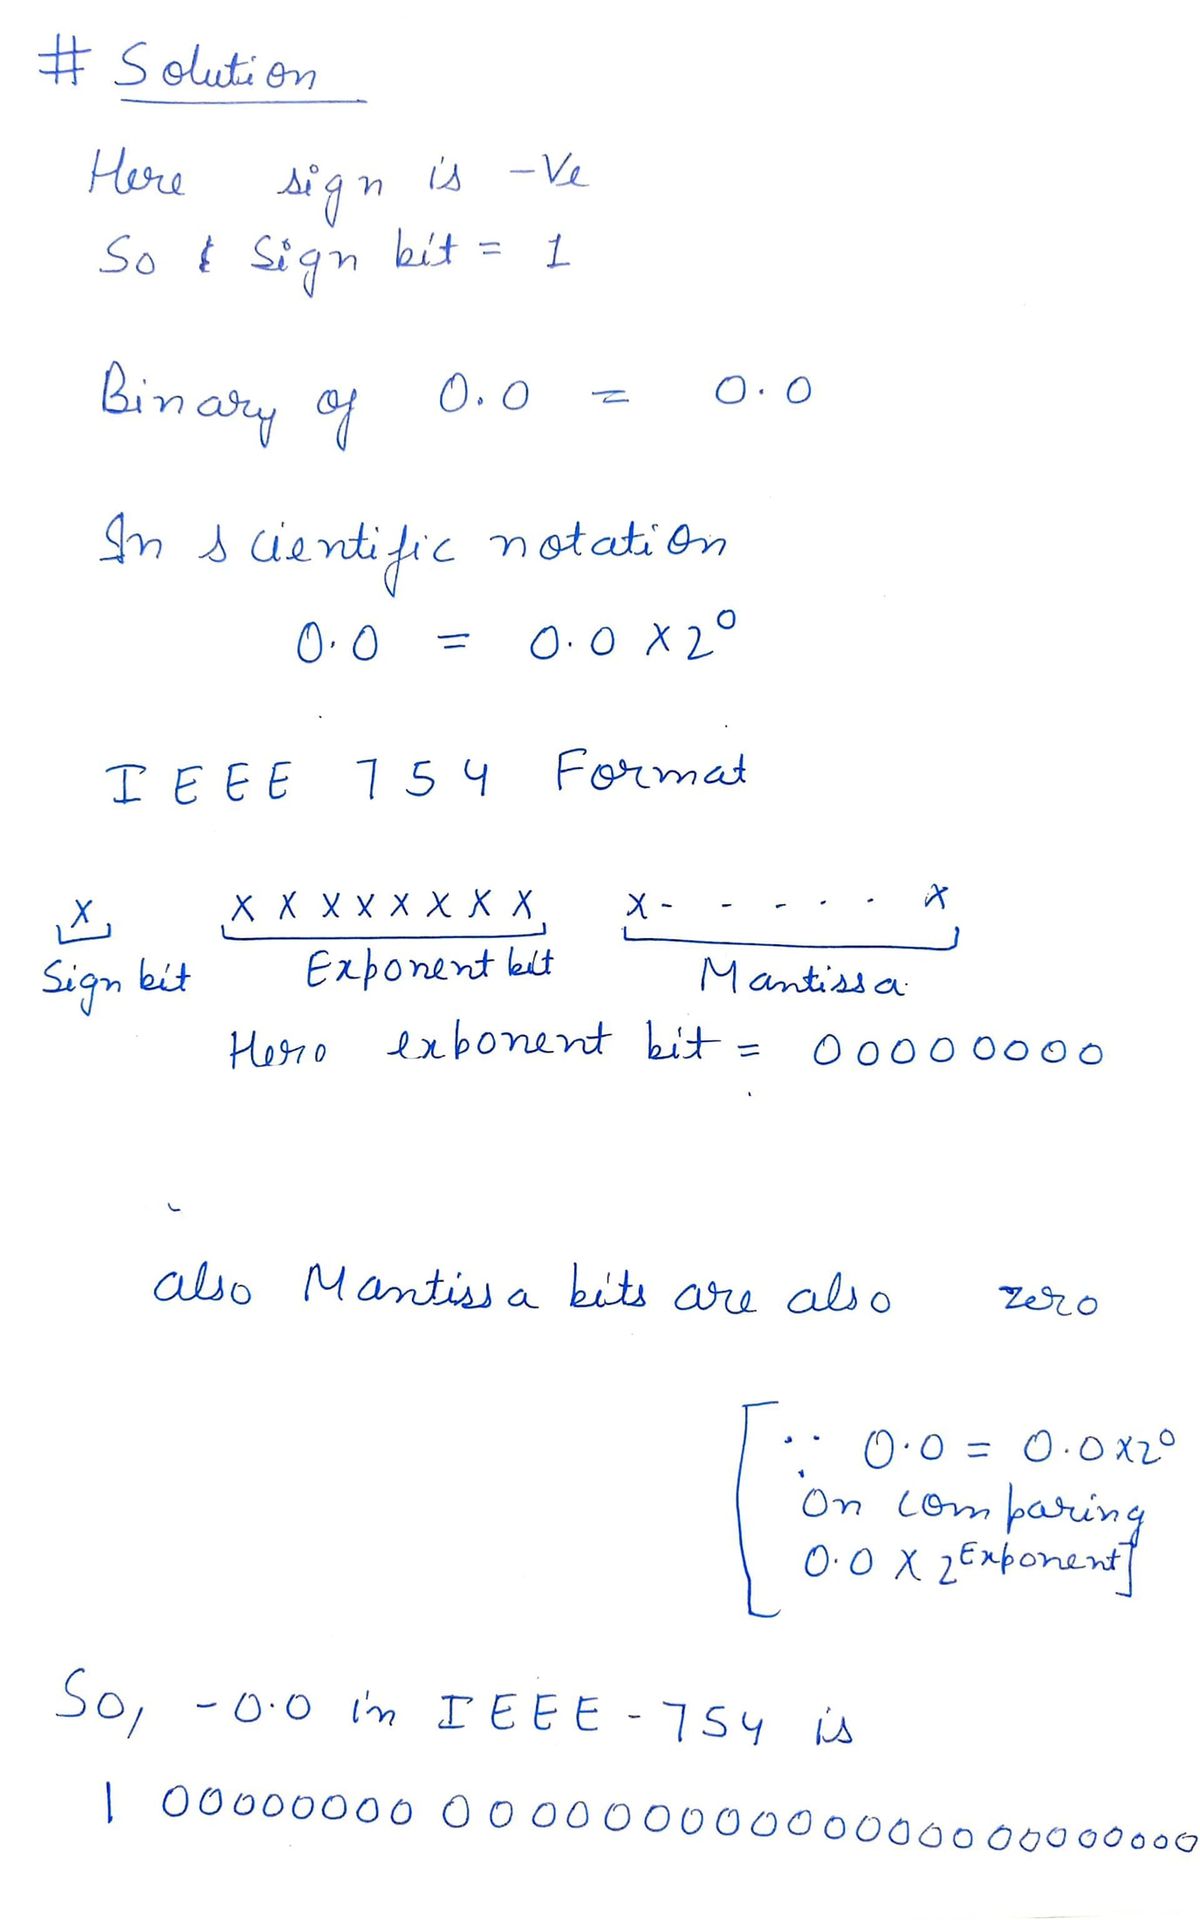 # Solution
Here sign is -Ve
So Sign bit = 1
Binary of 0.0 = 0.0
In scientific notation
0.0 = 0.0 × 2⁰
IEEE 754 Format
X X X X X X X X X X - - - . . . X
Sign bit Exponent bit Mantissa
Here exponent bit = 00000000
also Mantissa bits are also zero
[∵ 0.0 = 0.0 × 2⁰
On comparing
0.0 × 2^Exponent]
So, -0.0 in IEEE-754 is
1 00000000 00000000000000000000000